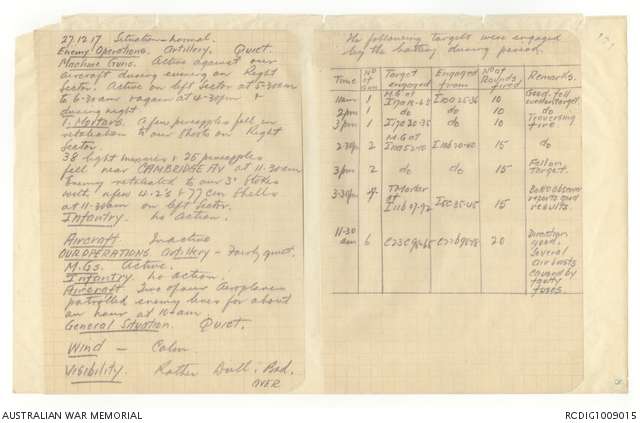 27.12.17 Situation - normal.
Enemy Operations. Artillery. Quiet.
Machine Guns. Active against our
aircraft during evening on Right
Sector. Active on left Sector at 5-30am
to 6-30am & again at 4-30pm &
during night
T. Mortars. A few pineapples fell in
retaliation to our shoots on Right
Sector.
38 light minnies & 26 pineapples
fell near CAMBRIDGE AV at 11-30am
Enemy retaliated to our 3" Stokes
with a few 4.2s & 77cm Shells
at 11-30am on left Sector.
Infantry. No action.
Aircraft Inactive
OUR OPERATIONS Artillery - Fairly quiet.
M.Gs. Active.
Infantry No action.
Aircraft. Two of our Aeroplanes
patrolled enemy lines for about
an hour at 10am.
General Situation Quiet.
Wind - Calm.
Visibility. Rather Dull. Bad.
OVER
The following targets were engaged
by the battery during period.
Time No of Gun Target engaged Engaged from No of Rounds fired Remarks.
11am 1 M.G at 10 Good. fell
2pm 1 do do 10 do
3pm 1 do 10 Traversing fire.
2-30pm 2 M.G at 15 do
3pm 2 do do 15 Fell on Target.
3-30pm T Mortar at 15 observer reports good results.
11-30 am 6 20 Direction good. Several air bursts caused by faulty fuses.
AUSTRALIAN WAR MEMORIAL
RCDIG1009015